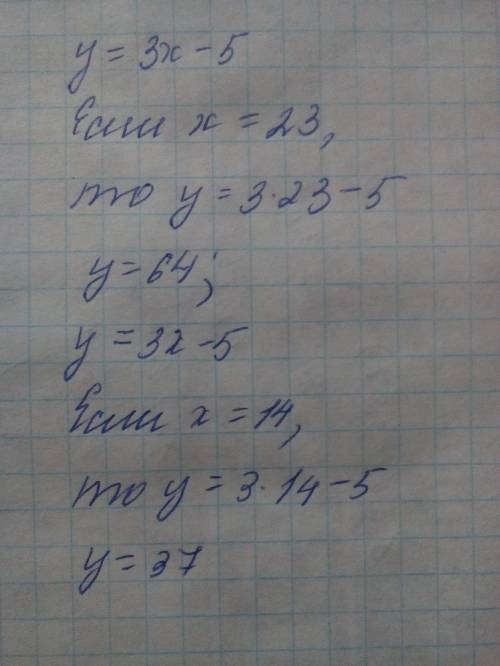 y = 3x - 5
Если x = 23,
то y = 3·23 - 5
y = 64;
y = 3x - 5
Если x = 14,
то y = 3·14 - 5
y = 37